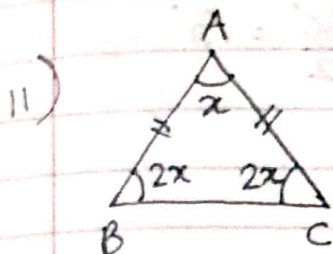 11)
A
x
2x 2x
B C